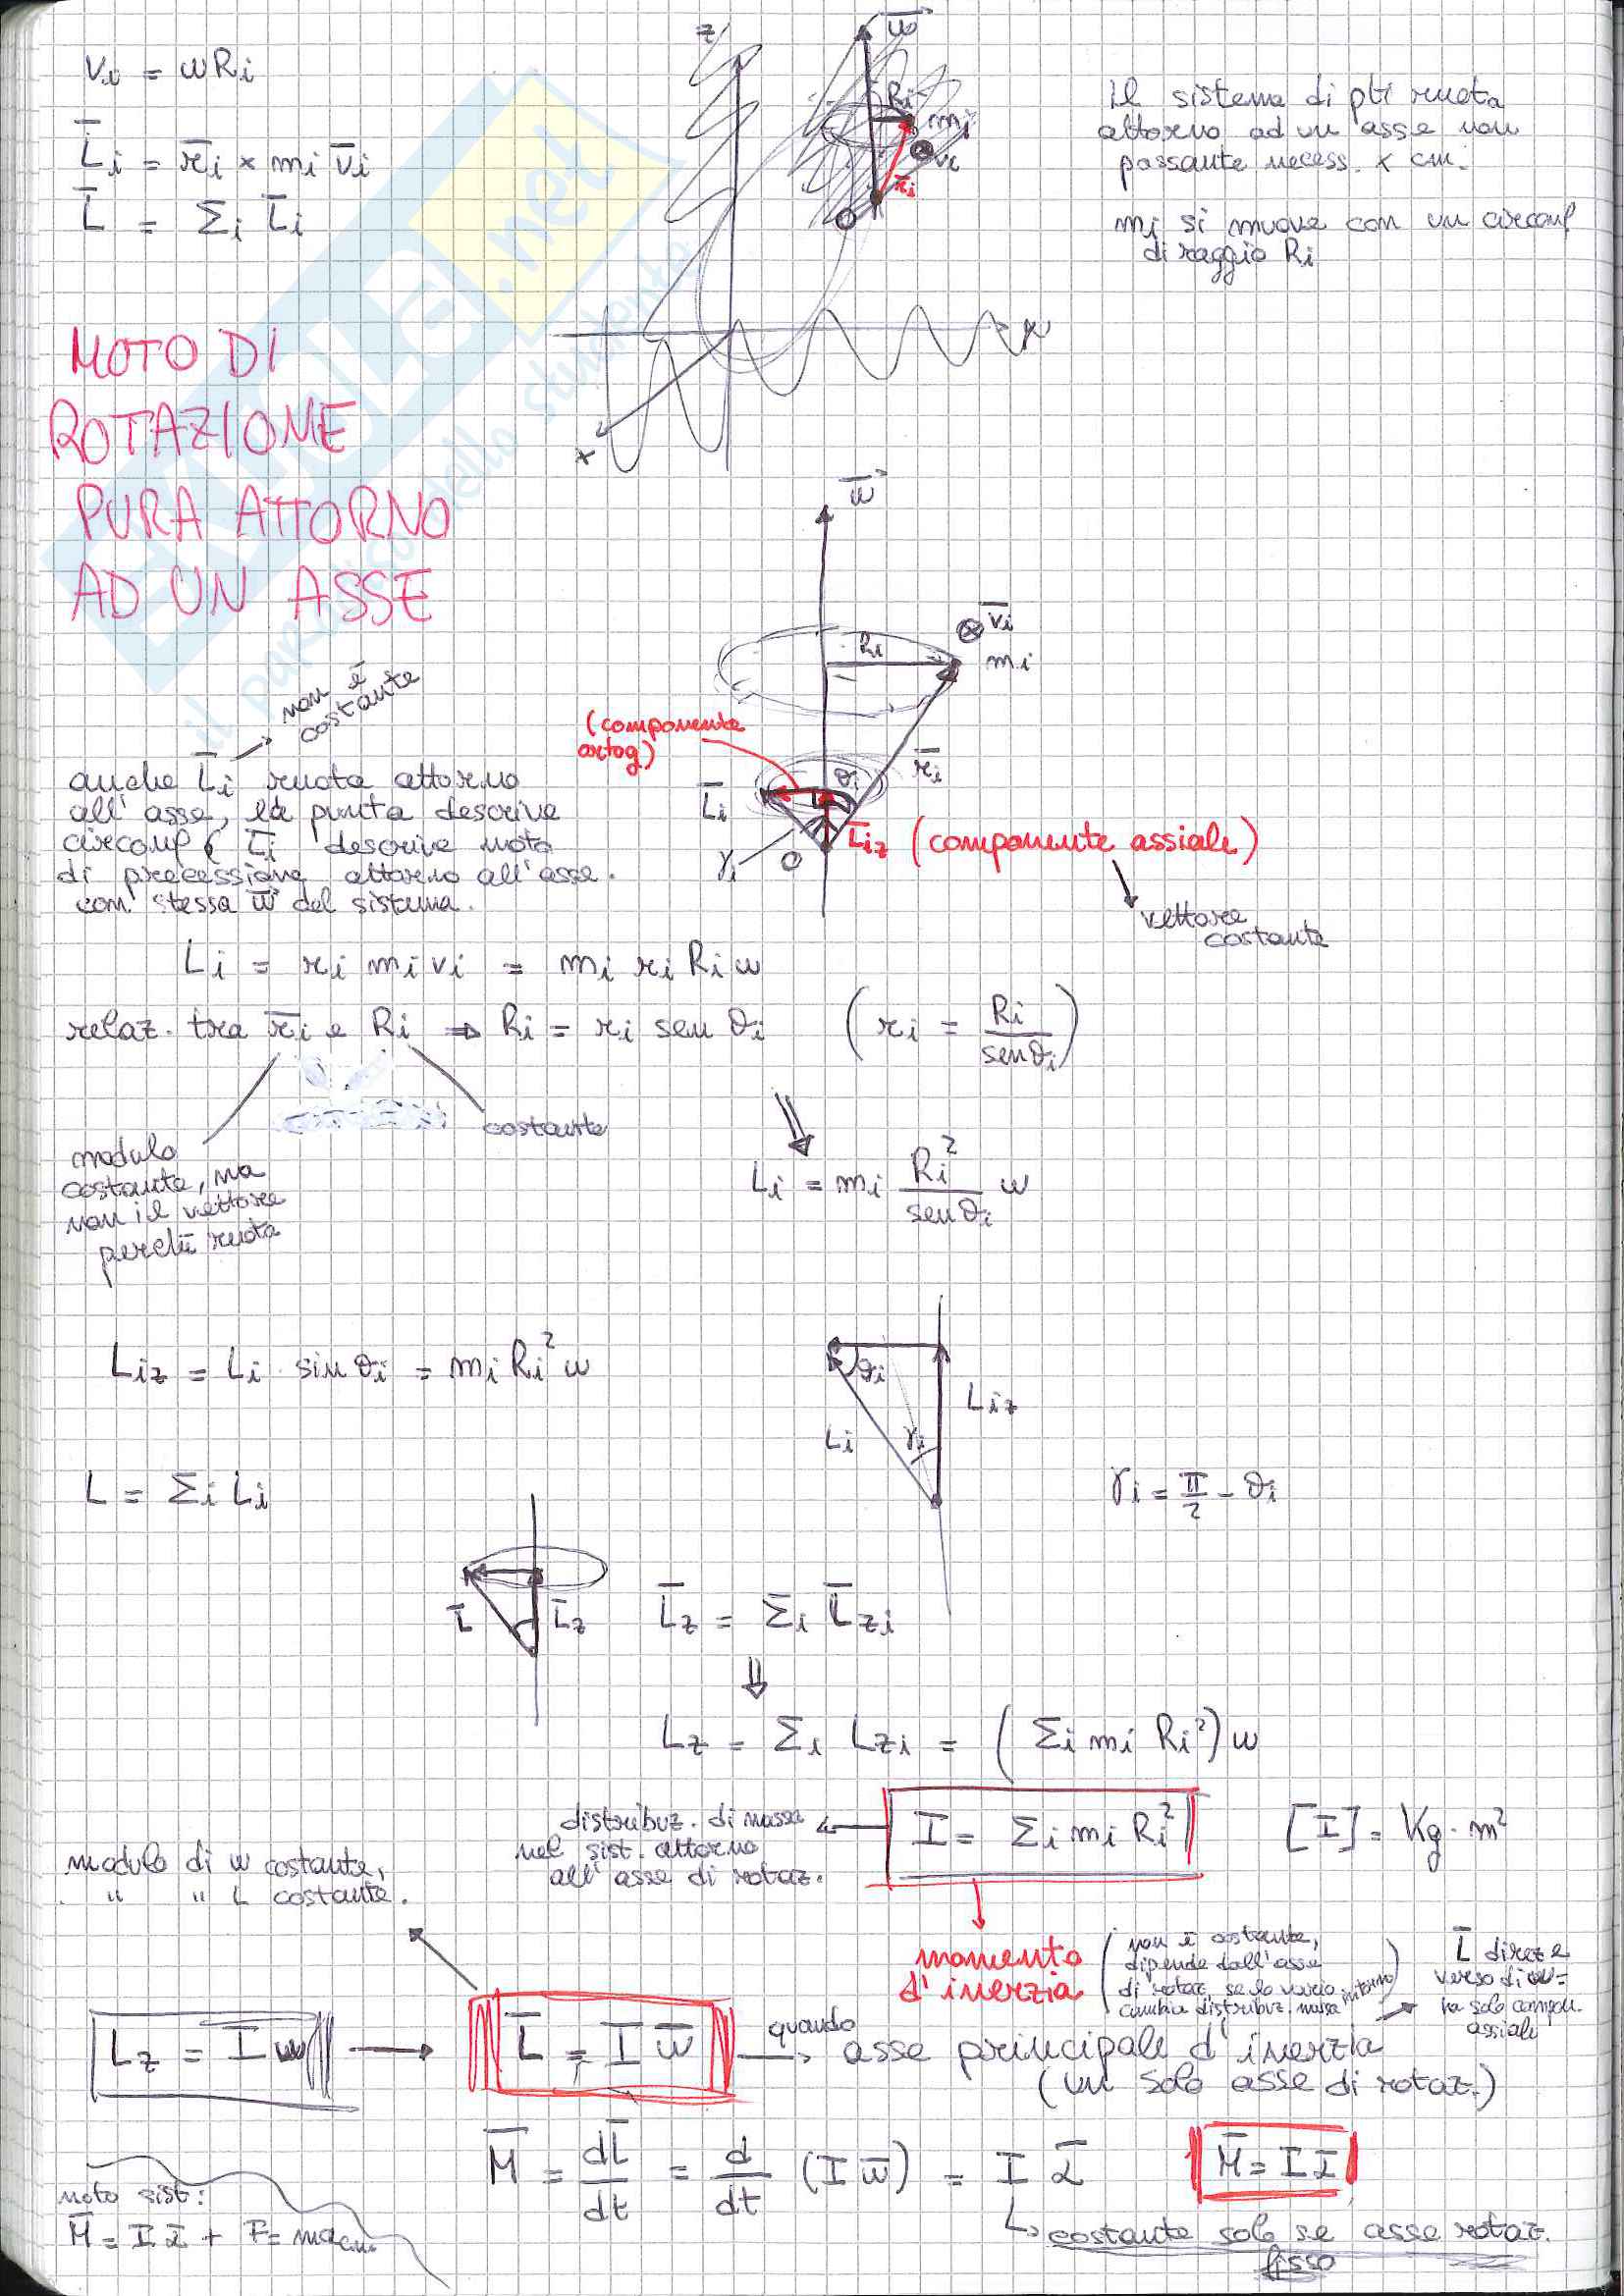 v_i = ωR_i
L̄_i = r̄_i × m_i v̄_i
L̄ = Σ_i L̄_i
z
ω̄
R_i
m_i
v̄_i
r̄_i
O
x
Il sistema di pti ruota
attorno ad un asse non
passante necess. x cm.
m_i si muove con un circonf
di raggio R_i
MOTO DI
ROTAZIONE
PURA ATTORNO
AD UN ASSE
ω̄
v̄_i
R_i
m_i
(componente
ortog)
θ_i
r̄_i
L̄_i
L̄_iz (componente assiale)
γ_i
O
vettore
costante
non è
costante
anche L̄_i ruota attorno
all'asse, la punta descrive
circonf. L̄_i descrive moto
di precessione attorno all'asse.
con stessa ω̄ del sistema.
L_i = r_i m_i v_i = m_i r_i R_i ω
relaz. tra r̄_i e R_i ⇒ R_i = r_i sen θ_i (r_i = R_i / senθ_i)
costante
modulo
costante, ma
non il vettore
perchè ruota
L_i = m_i R_i² / senθ_i ω
L_iz = L_i · sin θ_i = m_i R_i² ω
θ_i
L_iz
L_i
γ_i
L = Σ_i L_i
γ_i = π/2 - θ_i
L̄
L̄_z
L̄_z = Σ_i L̄_zi
⇓
L_z = Σ_i L_zi = (Σ_i m_i R_i²) ω
distribuz. di massa
nel sist. attorno
all'asse di rotaz.
I = Σ_i m_i R_i²
[I] = Kg · m²
modulo di ω costante,
" " L costante.
momento
d'inerzia
(non è costante,
dipende dall'asse
di rotaz, se lo vario
cambia distribuz. massa intorno)
L̄ direz e
verso di ω̄
ha solo compon.
assiale
L_z = I ω
L̄ = I ω̄
quando
asse principale d'inerzia
(un solo asse di rotaz.)
M̄ = dL̄/dt = d/dt (I ω̄) = I ᾱ
M̄ = I ᾱ
costante solo se asse rotaz.
fisso
moto sist:
M̄ = I ᾱ + F = ma_cm
EXVULA.net
il paradiso dello studente